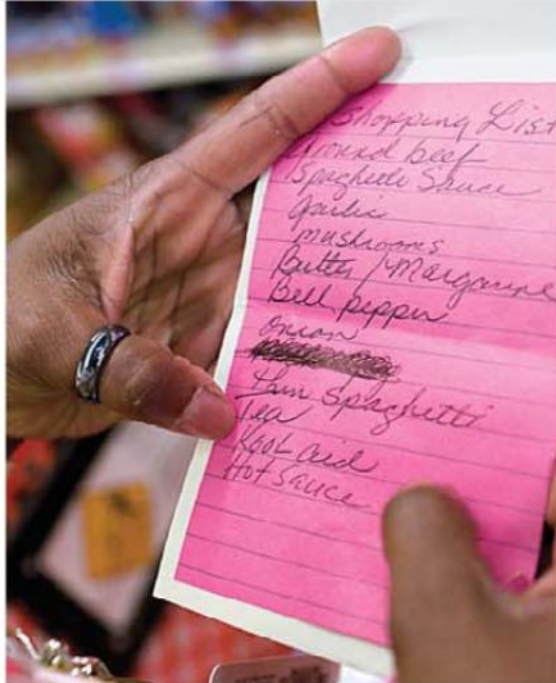 Shopping List
Ground beef
Spaghetti Sauce
Garlic
Mushrooms
Butter / Margarine
Bell pepper
Onion
thin Spaghetti
Tea
Kool aid
Hot Sauce